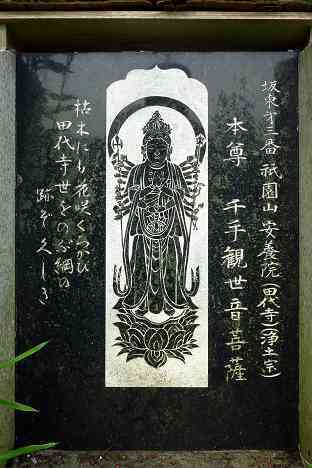 坂東第三番 祇園山 安養院(田代寺)(浄土宗)
本尊 千手観世音菩薩
枯木にも花咲くちかひ
田代寺世をのぶ綱の
跡ぞ久しき